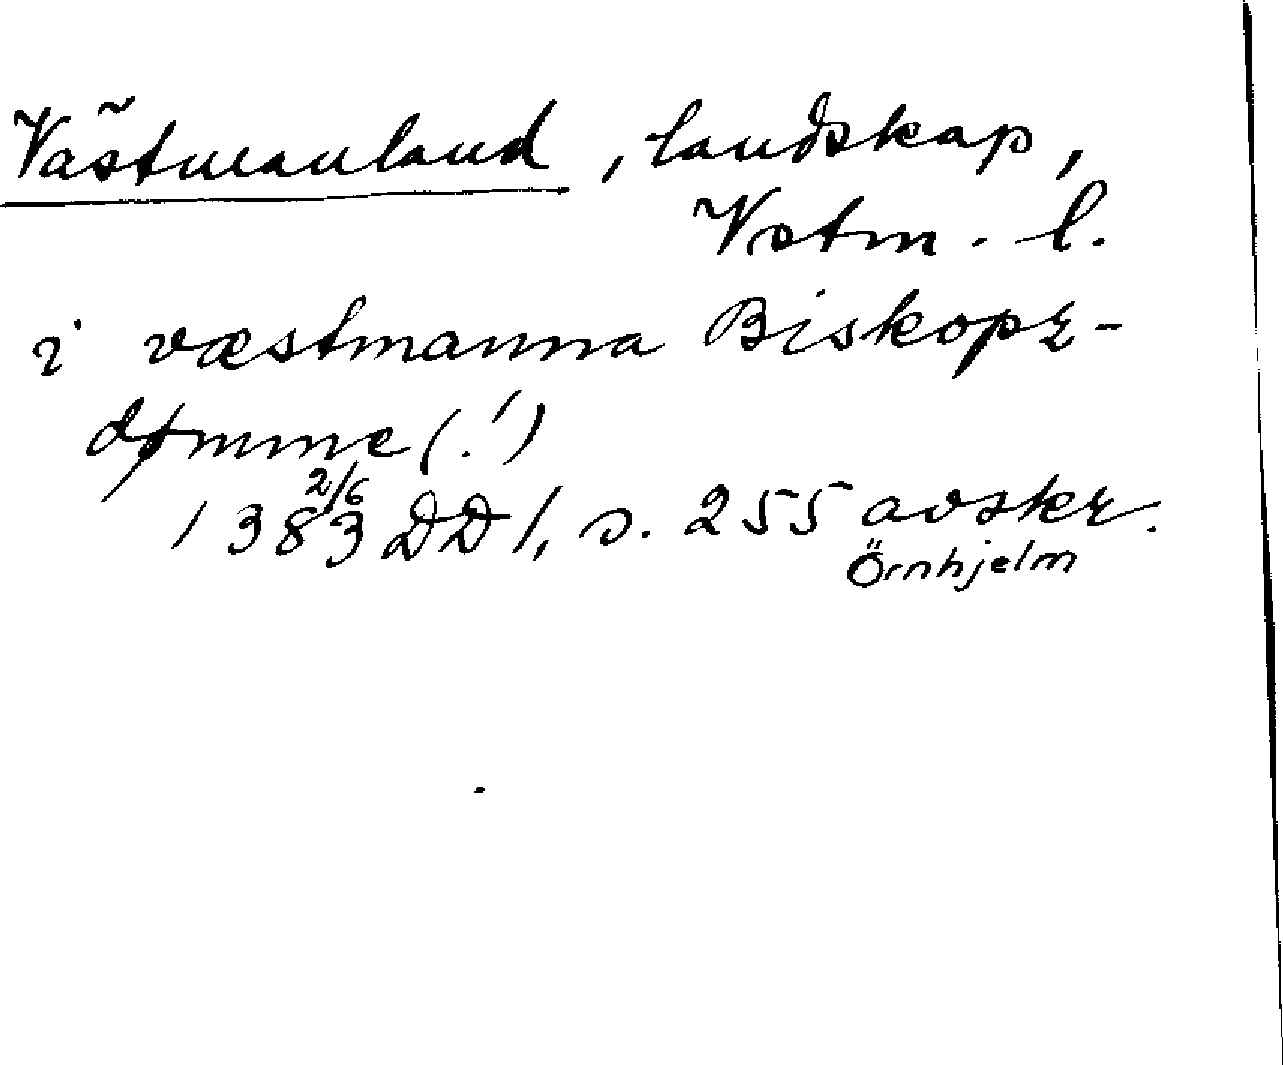 Västmanland, landskap,
Vstm. l.
i væstmanna Biskops-
dømme (!)
1383 2/6 DD 1, s. 255 avskr.
Örnhjelm